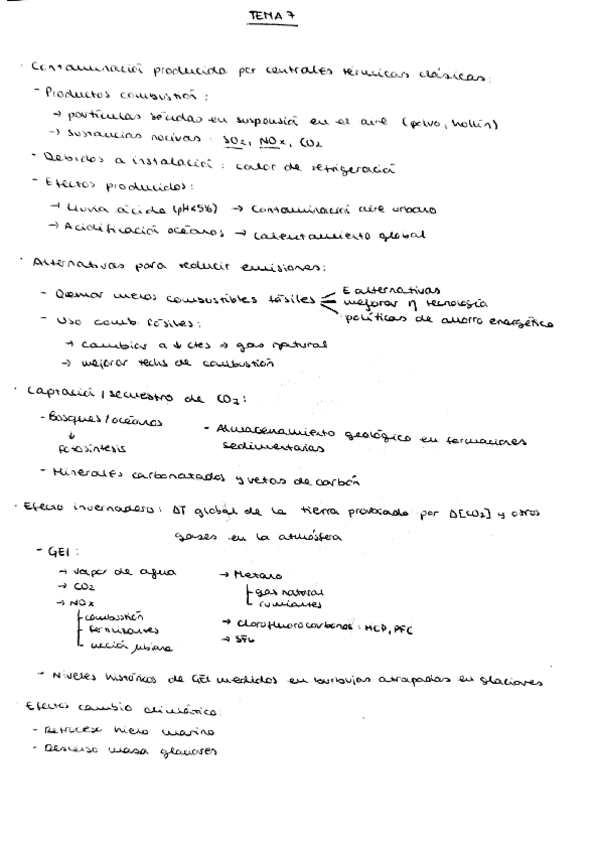 TEMA 7
· Contaminación producida por centrales térmicas clásicas:
- Productos combustión:
→ partículas sólidas en suspensión en el aire (polvo, hollín)
→ sustancias nocivas: SO2, NOx, CO2
- Debidos a instalación: calor de refrigeración
- Efectos producidos:
→ lluvia ácida (pH<5'6) → contaminación aire urbano
→ Acidificación océanos → calentamiento global
· Alternativas para reducir emisiones:
- Quemar menos combustibles fósiles
E alternativas
mejorar η tecnología
políticas de ahorro energético
- Uso comb fósiles:
→ cambiar a ↓ ctes → gas natural
→ mejorar techs de combustión
· Captación / secuestro de CO2:
- Bosques/océanos
↓
fotosíntesis
- Almacenamiento geológico en formaciones
sedimentarias
- Minerales carbonatados y vetas de carbón
· Efecto invernadero: ΔT global de la tierra provocado por Δ[CO2] y otros
gases en la atmósfera
- GEI:
→ vapor de agua
→ CO2
→ NOx
combustión
fertilizantes
→ Metano
gas natural
rumiantes
→ clorofluorocarbonos: HCD, PFC
→ SF6
- Niveles históricos de GEI medidos en burbujas atrapadas en glaciares
Efectos cambio climático
- Retroceso hielo marino
- Descenso masa glaciares